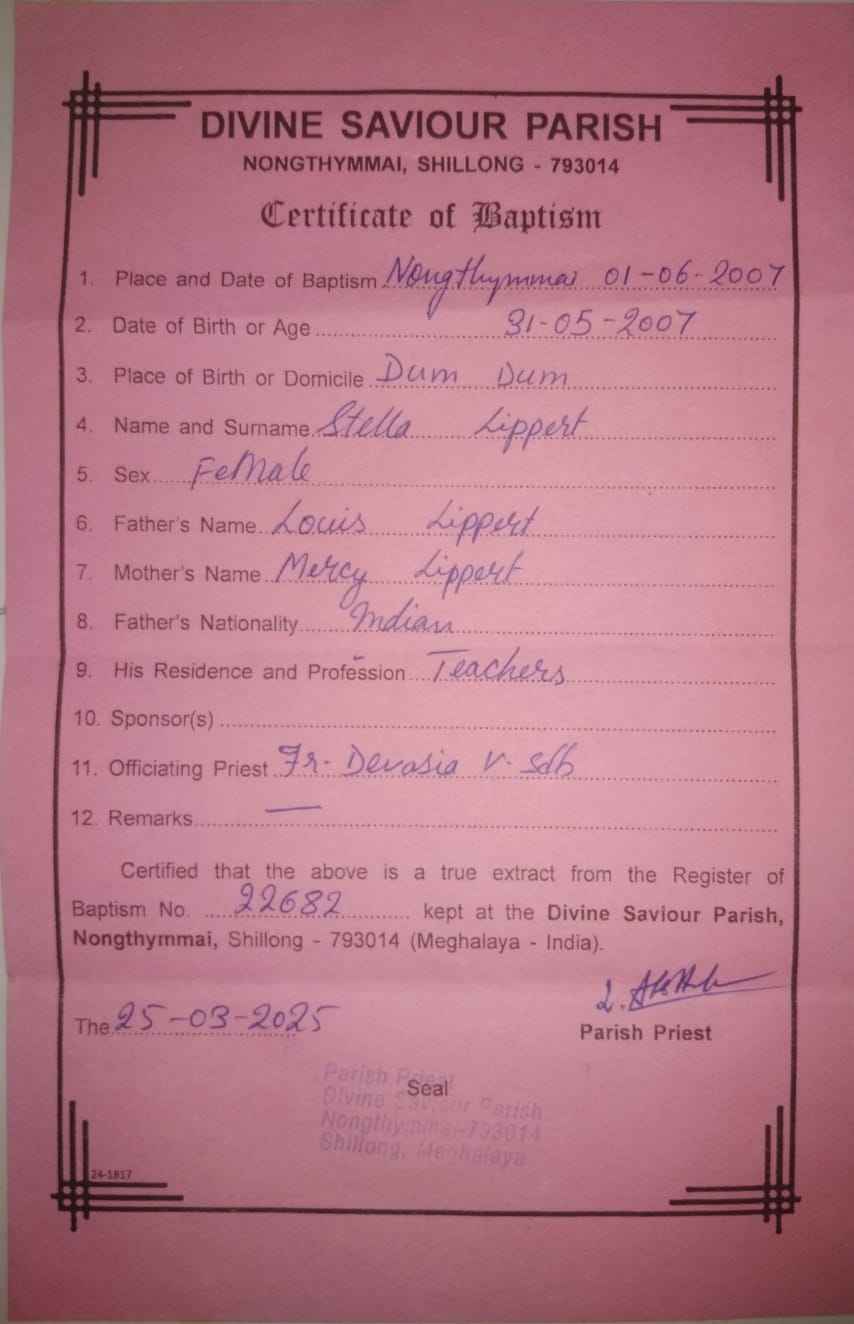 DIVINE SAVIOUR PARISH
NONGTHYMMAI, SHILLONG - 793014
Certificate of Baptism
1. Place and Date of Baptism Nongthymmai 01-06-2007
2. Date of Birth or Age 31-05-2007
3. Place of Birth or Domicile Dum Dum
4. Name and Surname Stella Lippert
5. Sex FeMale
6. Father's Name Louis Lippert
7. Mother's Name Mercy Lippert
8. Father's Nationality Indian
9. His Residence and Profession Teachers
10. Sponsor(s)
11. Officiating Priest Fr. Devasia V. Sdb
12. Remarks —
Certified that the above is a true extract from the Register of
Baptism No. 22682 kept at the Divine Saviour Parish,
Nongthymmai, Shillong - 793014 (Meghalaya - India).
The 25-03-2025
Parish Priest
Seal
Parish Priest
Divine Saviour Parish
Nongthymmai-793014
Shillong, Meghalaya
24-1817